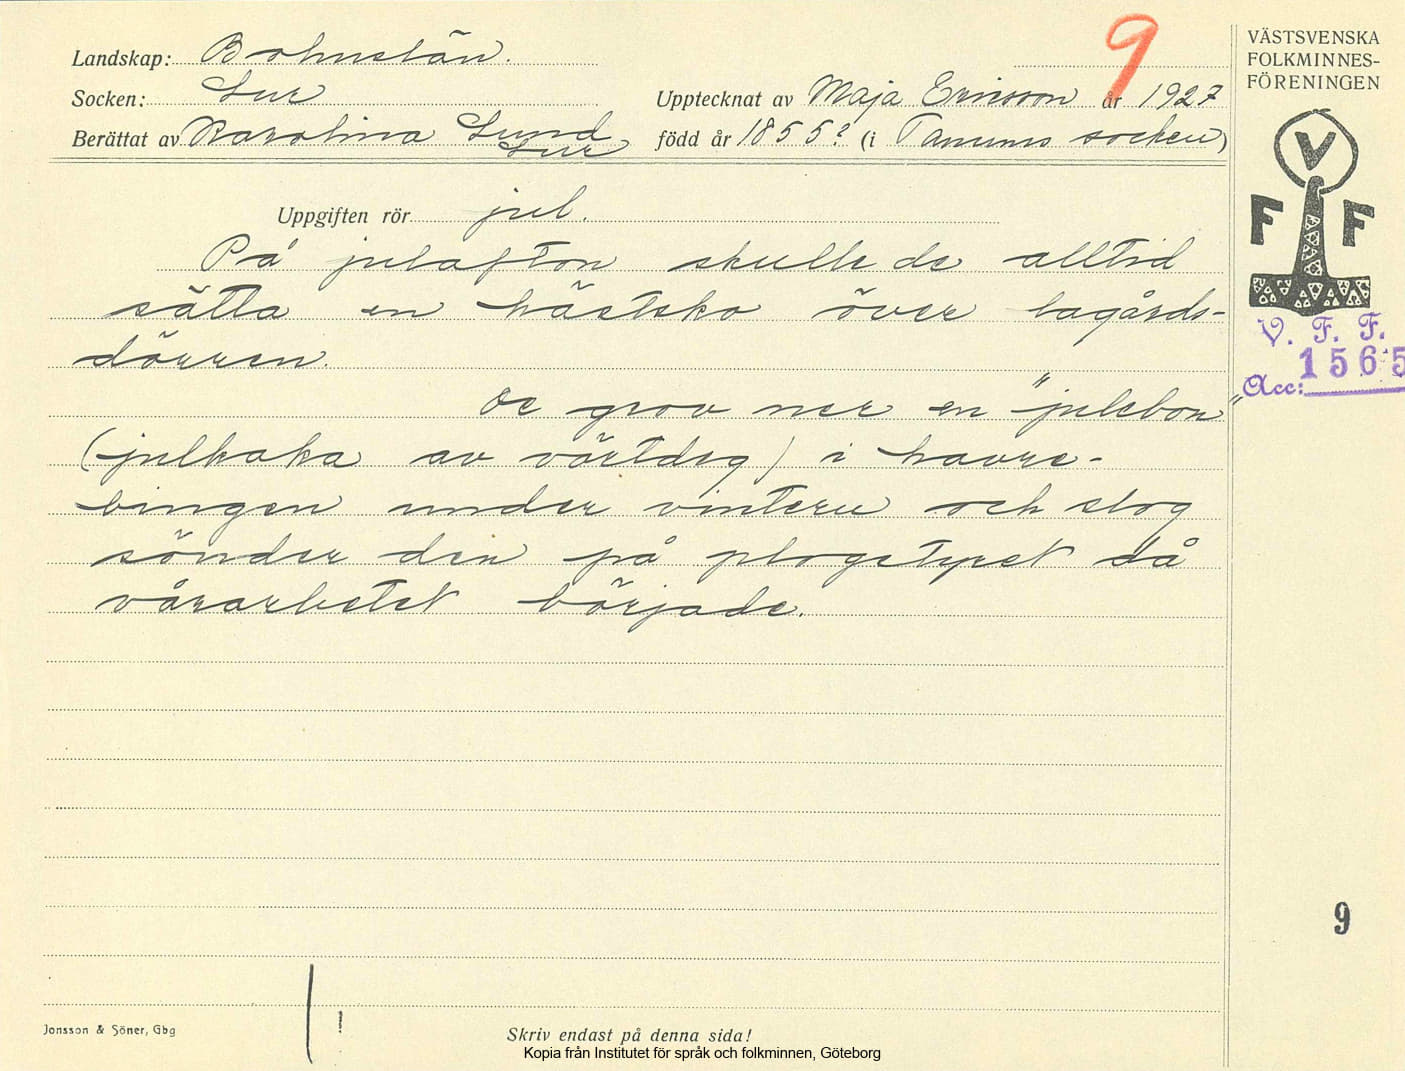 9
Landskap: Bohuslän.
Socken: Lur
Upptecknat av Maja Ericsson år 1927
Berättat av Karolina Lund
Lur
född år 1855? (i Tanums socken)
VÄSTSVENSKA
FOLKMINNES-
FÖRENINGEN
V
F F
V. F. F.
1565
Acc:
Uppgiften rör jul.
På julafton skulle de alltid
sätta en hästsko över lagårds-
dörren.
De grov ner en "julebon"
(julkaka av vörtdeg) i havre-
bingen under vintern och slog
sönder den på plogstyret då
vårarbetet började.
9
Jonsson & Söner, Gbg
Skriv endast på denna sida!
Kopia från Institutet för språk och folkminnen, Göteborg